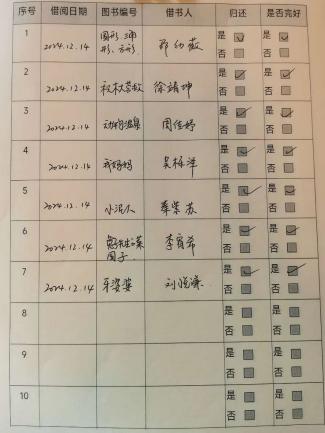 序号 借阅日期 图书编号 借书人 归还 是否完好
1 2024.12.14 圆形、三角形、方形 是 是
否 否
2 2024.12.14 徐靖坤 是 是
否 否
3 2024.12.14 动物温泉 周佳婷 是 是
否 否
4 2024.12.14 我妈妈 吴 洋 是 是
否 否
5 2024.12.14 小泥人 苏 是 是
否 否
6 2024.12.14 菜园子 李 希 是 是
否 否
7 2024.12.14 牙婆婆 刘悦 是 是
否 否
8 是 是
否 否
9 是 是
否 否
10 是 是
否 否